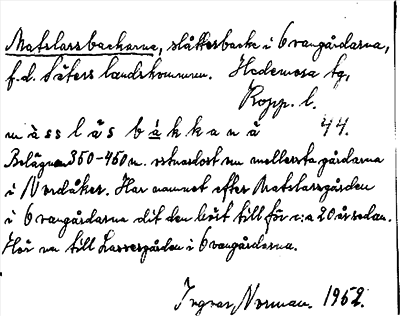 Matslassbackarna, slåttesbacke i Ovangårdarna,
f.d. Säters landskommun. Hedemora tg,
Kopp. l.
m à s s l å s b à k k a n à 44.
Belägna 350-450 m. nordost om mellersta gårdarna
i Nordåker. Har namnet efter Matslassgården
i Ovangårdarna dit den hört till för c:a 20 år sedan.
Hör nu till Larsesgården i Ovangårdarna.
Ingvar Norman. 1952.